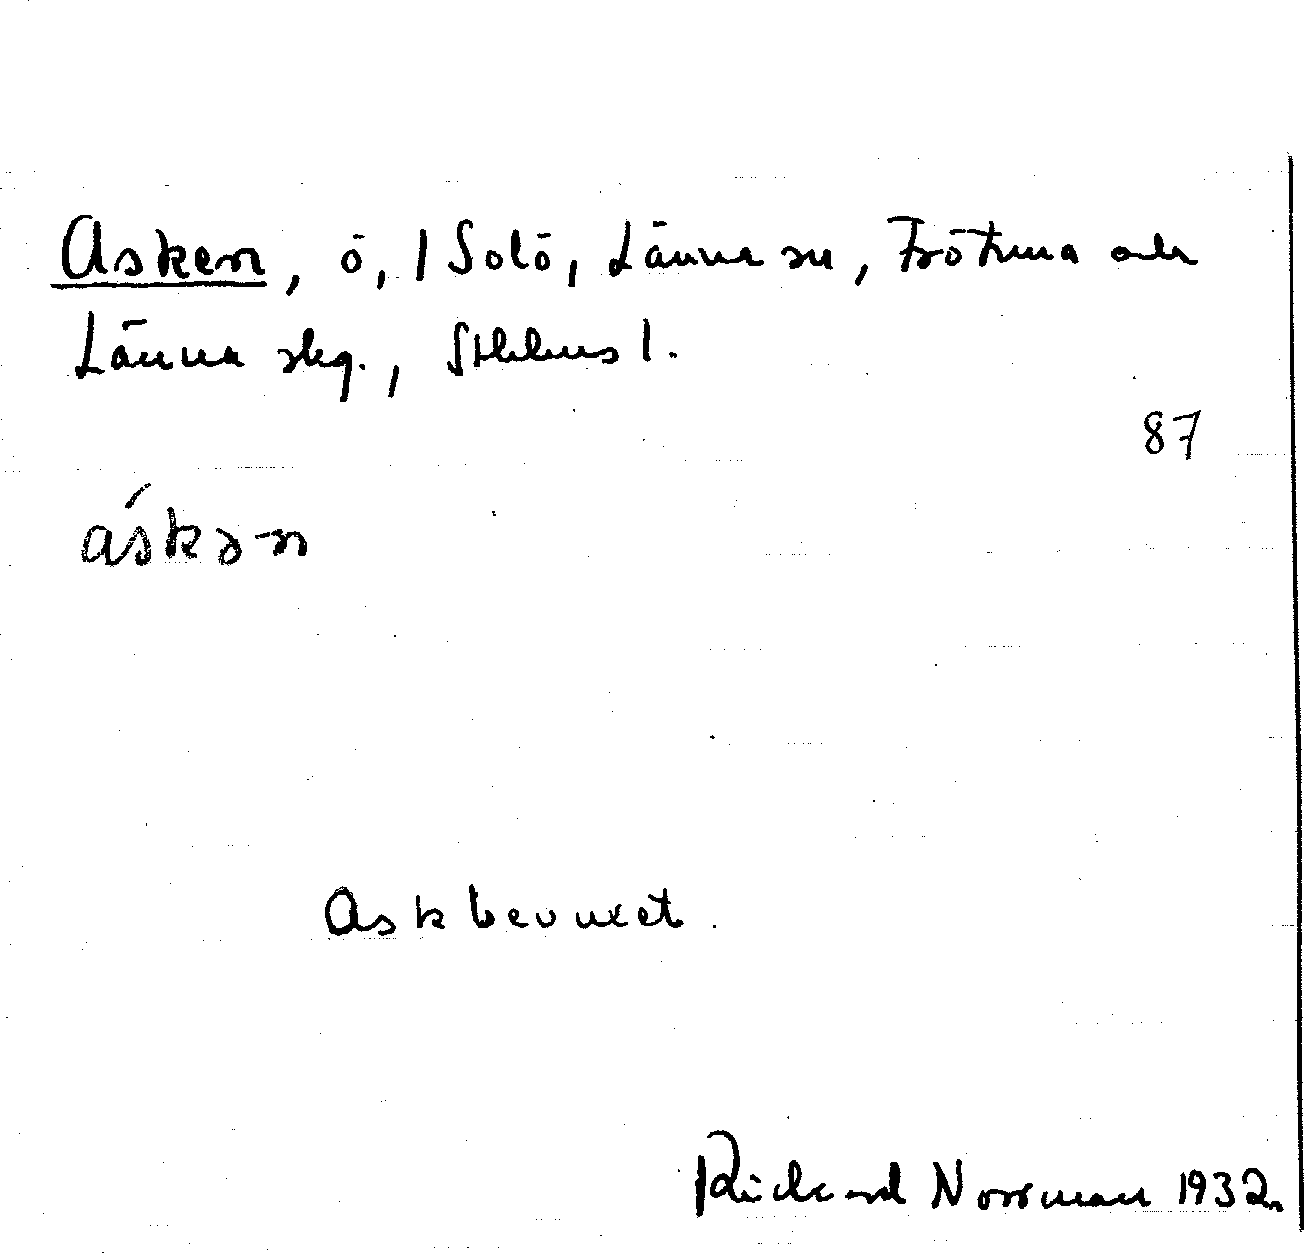 Asken, ö, / Solö, Länna sn, Frötuna och
Länna skg., Sthlms l.
87
áskən
Askbevuxet.
Rickard Norrman 1932.